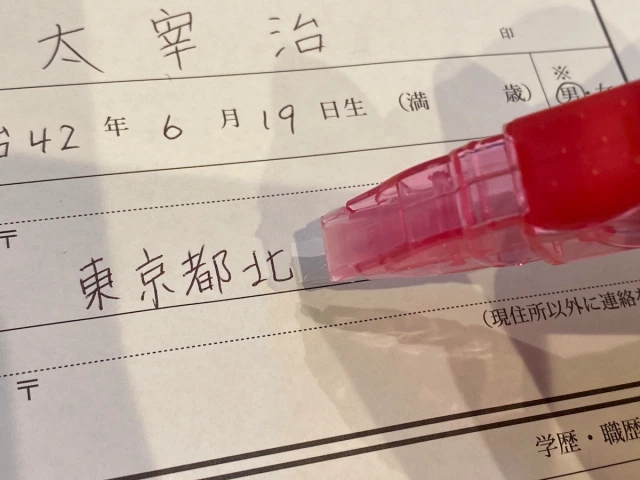 太宰治 印
42年6月19日生 (満 歳) ※
男・
〒
東京都北
(現住所以外に連絡
〒
学歴・職歴